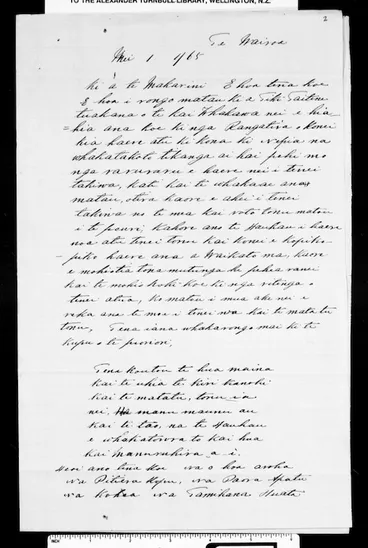 TO THE ALEXANDER TURNBULL LIBRARY, WELLINGTON, N.Z.
2
Te Wairoa
Mei 1 1865
Ki a te Makarini E hoa tena koe
E hoa i rongo matau ki a Taitimu
tuakana o te kai Whakawa nei e hia
=hia ana koe ki nga Rangatira o Konei
kia haere atu ki kona ki Nepia na
whakatakoto tikanga ai hai pehi mo
nga raruraru e haere nei i tenei
takiwa, kati kai te whakaae ana
matau, otira kaore e ahei i tenei
takiwa no te mea kai roto tonu matou
i te pouri, kahore ano te Hauhau i haere
noa atu tenei tonu kai konei e kopiko
-piko haere ana a Waikato ma, kaore
e mohiotia tona mutunga ke pehia ranei
kai te mohio hoki koe ki nga ritenga o
tenei atua, ko matou i mua ake nei e
reka ana te moe i tenei wa kai te matatu
tonu, Tena iana whakarongo mai ki te
kupu o te
Tera koutou te hua maina
kai te uhia te kiri kanohi
kai te matatu, tonu ia
nei, manu maunu au
kai te tao, na te Hauhau
e whakatowra to kai hua
hai manurahira a i.
Heoi ano tena koe na o hoa aroha
na Pitiera Kopu, na Paora Apatu
na Kokaa na Tamihana Huata